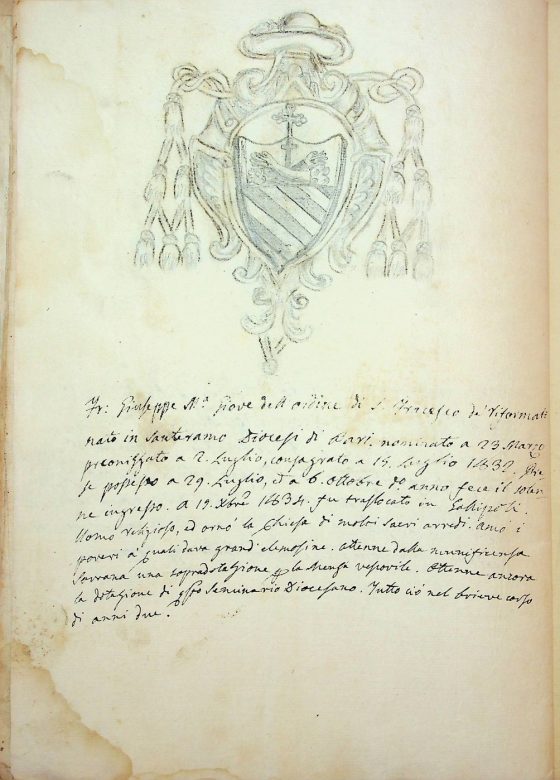 Fr: Giuseppe M.ª Giove dell'ordine di S. Francesco de' Riformati
nato in Santeramo Diocesi di Bari. nominato a 23 Marzo
preconizzato a 2. Luglio, consagrato a 15. Luglio 1832. Pre
se possesso a 29. Luglio, ed a 6. ottobre dº anno fece il solen
ne ingresso. a 19. Xbre 1834. fu traslocato in Gallipoli.
Uomo religioso, ed ornò la Chiesa di molti sacri arredi. amò i
poveri a' quali dava grandi elemosine. ottenne dalla munificenza
Sovrana una sopradotazione p la Mensa vescovile. Ottenne ancora
la dotazione di qsto Seminario Diocesano. Tutto ciò nel brieve corso
di anni due.